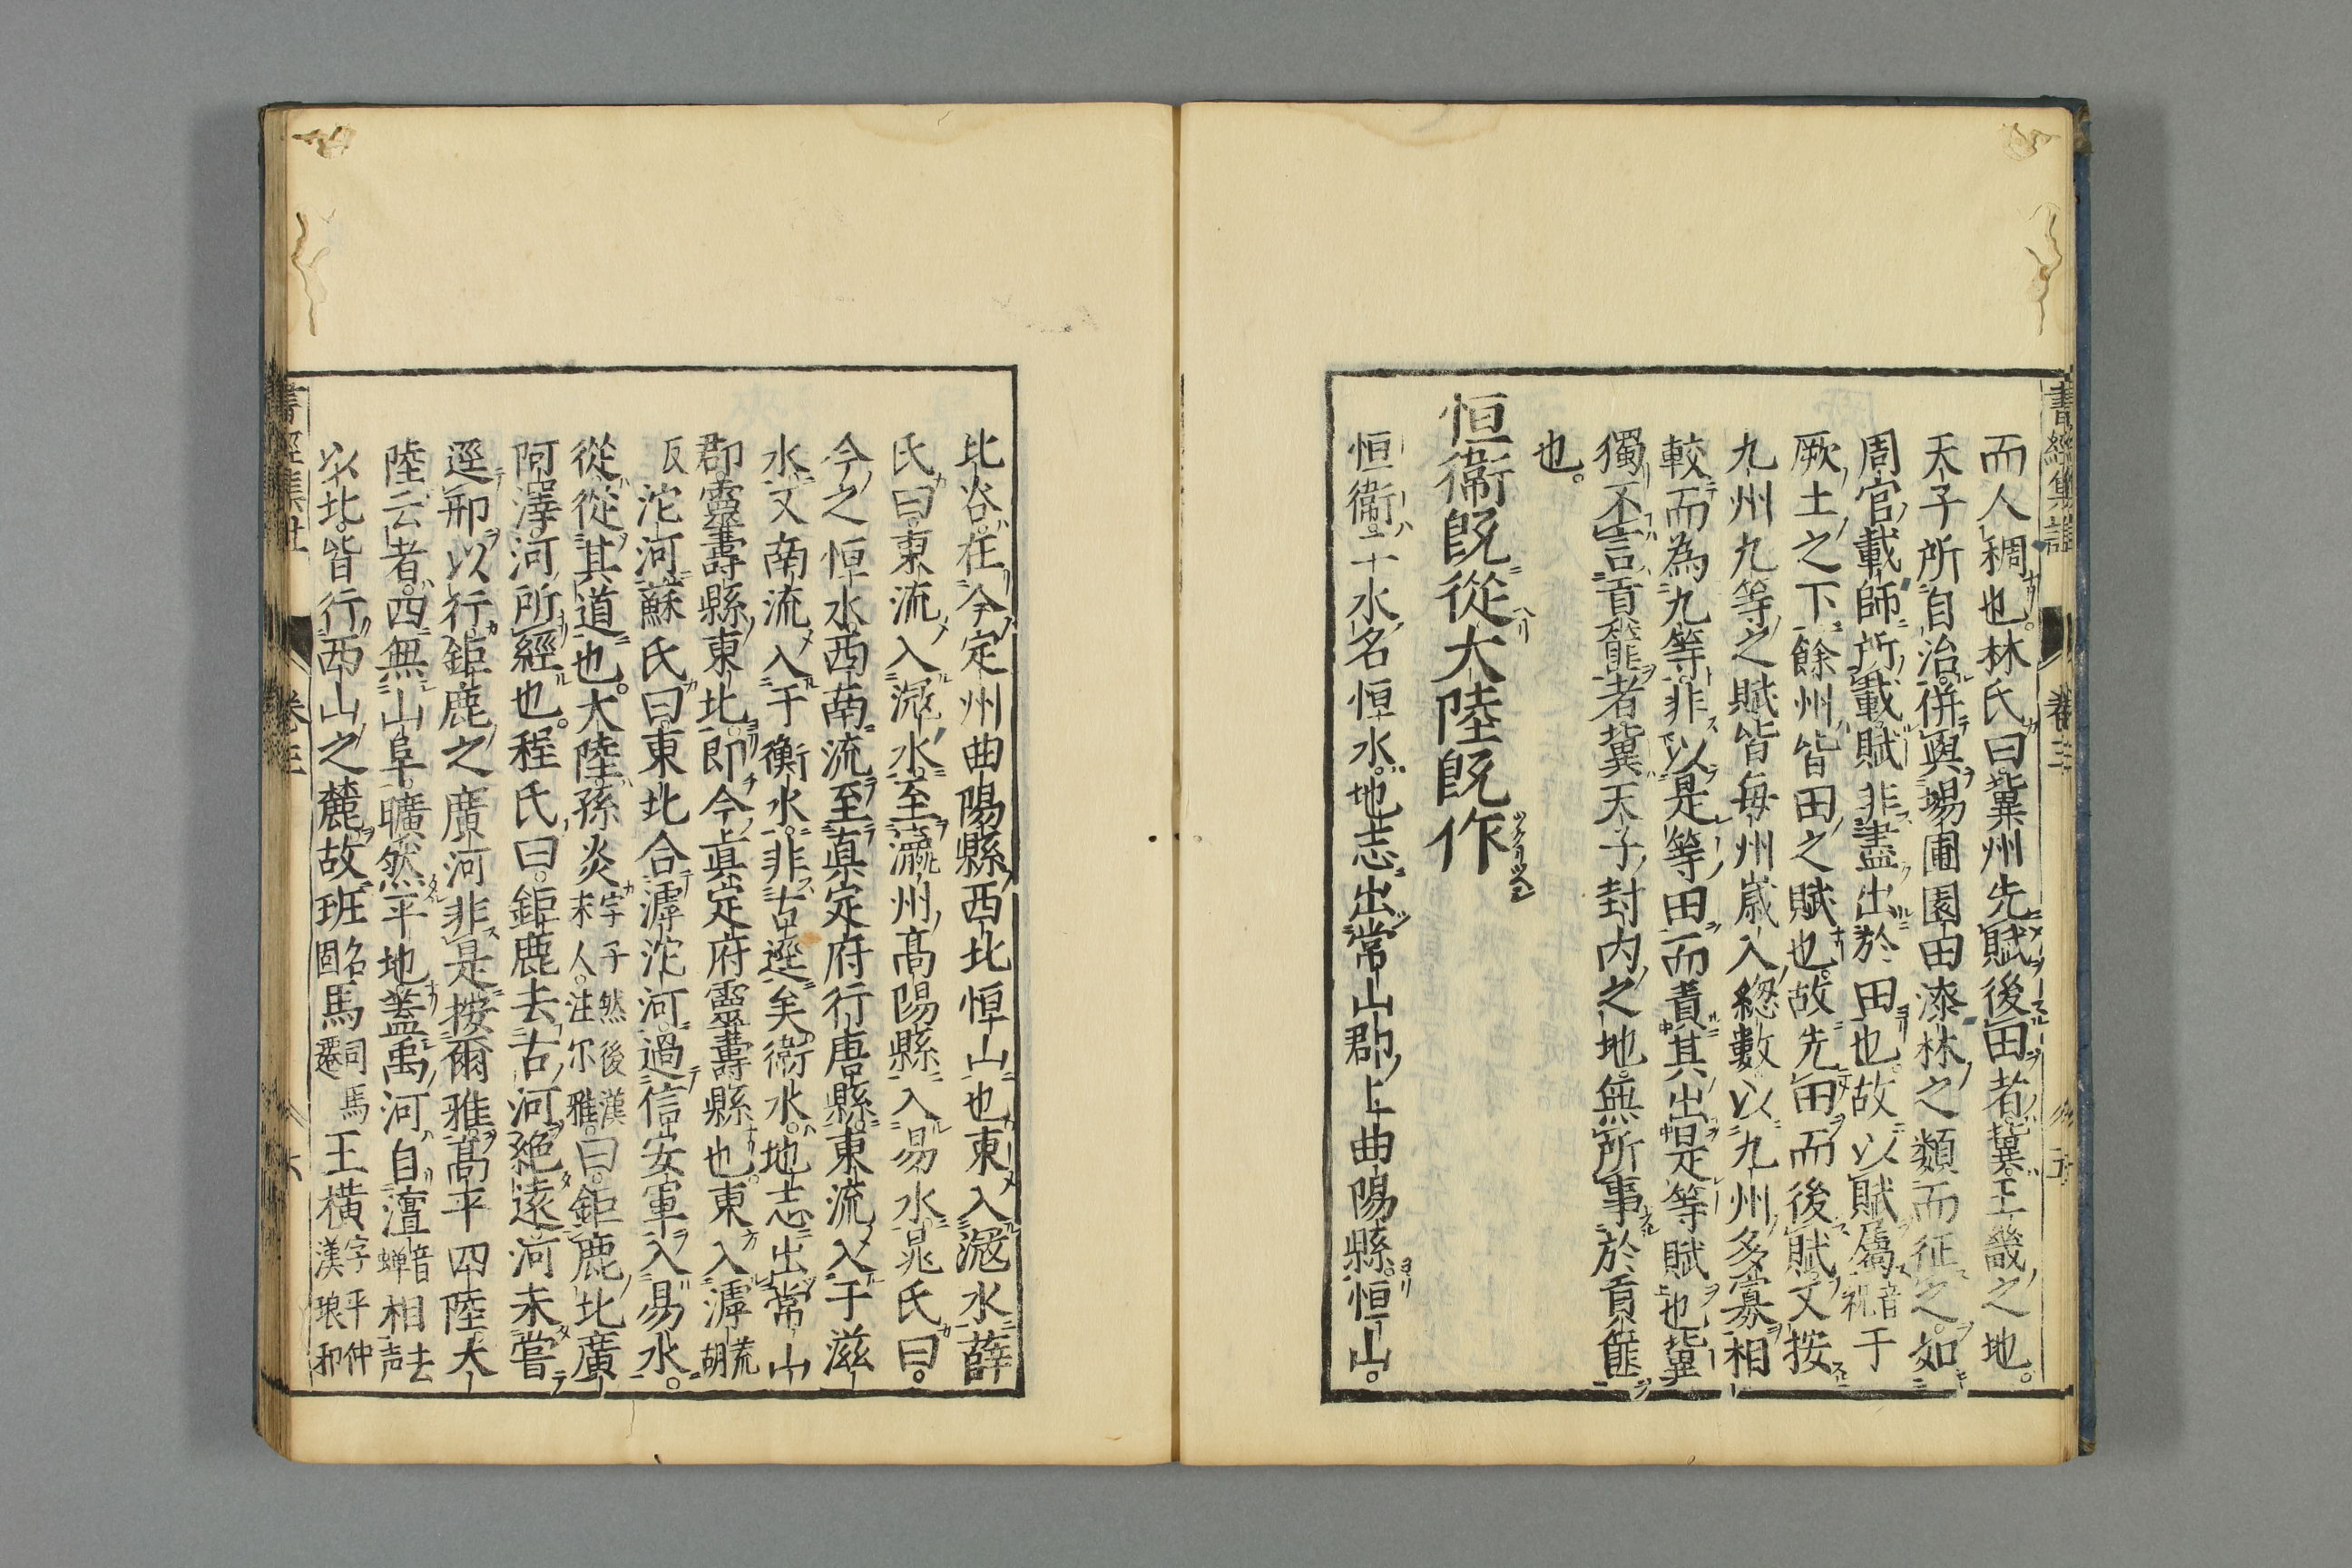 書經集註 卷三 五
而人稠也。林氏曰冀州先賦後田者。冀王畿之地。
天子所自治。併與場圃園田漆林之類而征之。如
周官載師所載賦非盡出於田也。故以賦屬音祝于
厥土之下餘州皆田之賦也。故先田而後賦。又按
九州九等之賦皆每州歲入緫數。以九州多寡相
較而為九等。非以是等田而責其出是等賦也冀
獨不言貢篚者冀天子封内之地。無所事於貢篚
也。
恒衞既從大陸既作
恒衞。二水名恒水。地志出常山郡上曲陽縣。恒山。
北谷。在今定州曲陽縣西北恒山也東入滱水薛
氏曰。東流入滱水。至瀛州高陽縣入易水晁氏曰。
今之恒水。西南流至真定府行唐縣。東流入于滋
水又南流入于衡水。非古逕矣。衞水。地志出常山
郡靈壽縣東北。即今真定府靈壽縣也。東入滹荒胡
反沱河。蘇氏曰東北合滹沱河。過信安軍入易水。
從從其道也。大陸。孫炎字子然後漢末人。注尓雅。曰。鉅鹿北廣
阿澤。河所經也。程氏曰。鉅鹿去古河絶遠河未嘗
逕邢以行。鉅鹿之廣河非是。按爾雅。高平曰陸大
陸云者。西無山阜。曠然平地。蓋禹河自澶音蟬相去声
以北。皆行西山之麓故班名固馬司馬遷王橫字平仲漢琅邪
書經集註 卷三 六